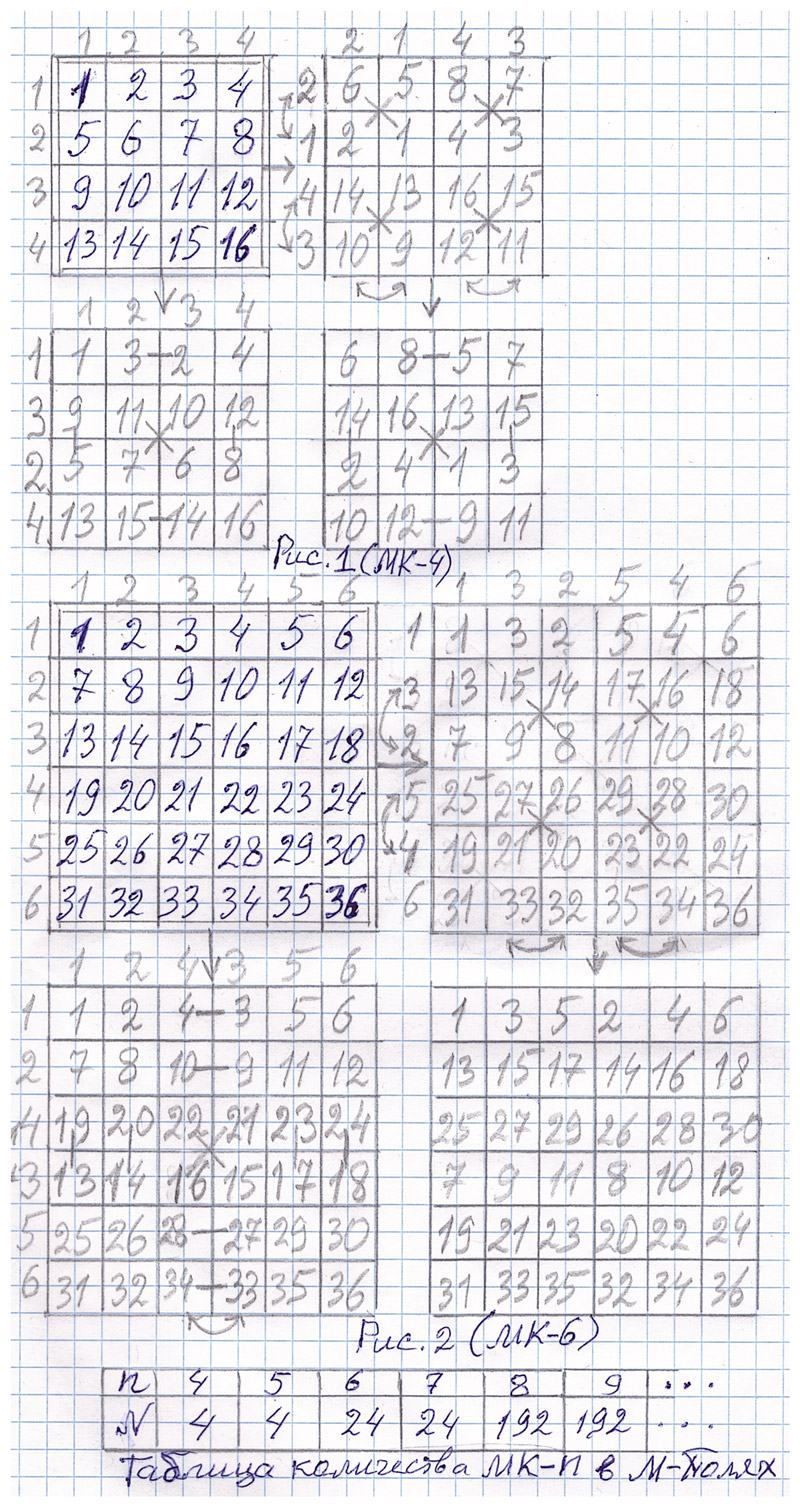 1 2 3 4 2 1 4 3
1 1 2 3 4 2 6 5 8 7
2 5 6 7 8 1 2 1 4 3
3 9 10 11 12 4 14 13 16 15
4 13 14 15 16 3 10 9 12 11
1 2 3 4
1 1 3 2 4 6 8 5 7
3 9 11 10 12 14 16 13 15
2 5 7 6 8 2 4 1 3
4 13 15 14 16 10 12 9 11
Рис. 1 (МК-4)
1 2 3 4 5 6 1 3 2 5 4 6
1 1 2 3 4 5 6 1 1 3 2 5 4 6
2 7 8 9 10 11 12 3 13 15 14 17 16 18
3 13 14 15 16 17 18 2 7 9 8 11 10 12
4 19 20 21 22 23 24 5 25 27 26 29 28 30
5 25 26 27 28 29 30 4 19 21 20 23 22 24
6 31 32 33 34 35 36 6 31 33 32 35 34 36
1 2 4 3 5 6
1 1 2 4 3 5 6 1 3 5 2 4 6
2 7 8 10 9 11 12 13 15 17 14 16 18
4 19 20 22 21 23 24 25 27 29 26 28 30
3 13 14 16 15 17 18 7 9 11 8 10 12
5 25 26 28 27 29 30 19 21 23 20 22 24
6 31 32 34 33 35 36 31 33 35 32 34 36
Рис. 2 (МК-6)
n 4 5 6 7 8 9 ...
N 4 4 24 24 192 192 ...
Таблица количества МК-n в М-Полях